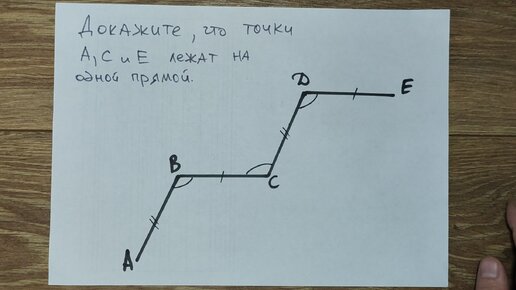 Докажите, что точки
A, C и E лежат на
одной прямой.
D
E
B
C
A